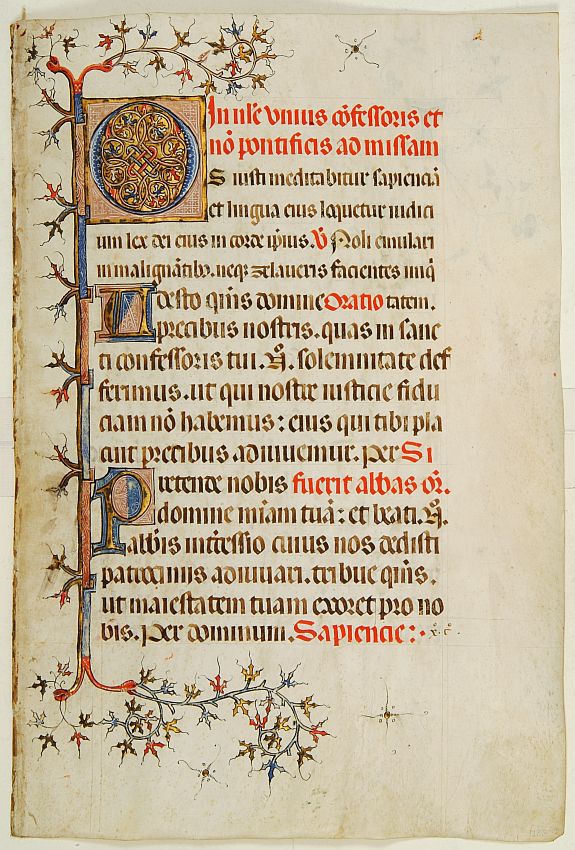 In nłe vnius cōfessoris et
nō pontificis ad missam
OS iusti meditabitur sapienciā
et lingua eius loquetur iudici
um lex dei eius in corde ipīus. V̄ Noli emulari
in malignātibꝫ. neqꝫ zelaueris facientes iniq̄
Adesto q̄ms domine Oratio tatem.
precibus nostris. quas in sanc
ti confessoris tui. N̊. solemnitate def
ferimus. ut qui nostre iusticie fidu
ciam nō habemus: eius qui tibi pla
cuit precibus adiuuemur. Per Si
Pretende nobis fuerit abbas or̄.
domine mīam tuā: et beati. N̊.
abb̄is intc̄essio cuius nos dedisti
patrociniis adiuuari. tribue q̄ms.
ut maiestatem tuam exoret pro no
bis. Per dominum. Sapiencie: x. c̊.